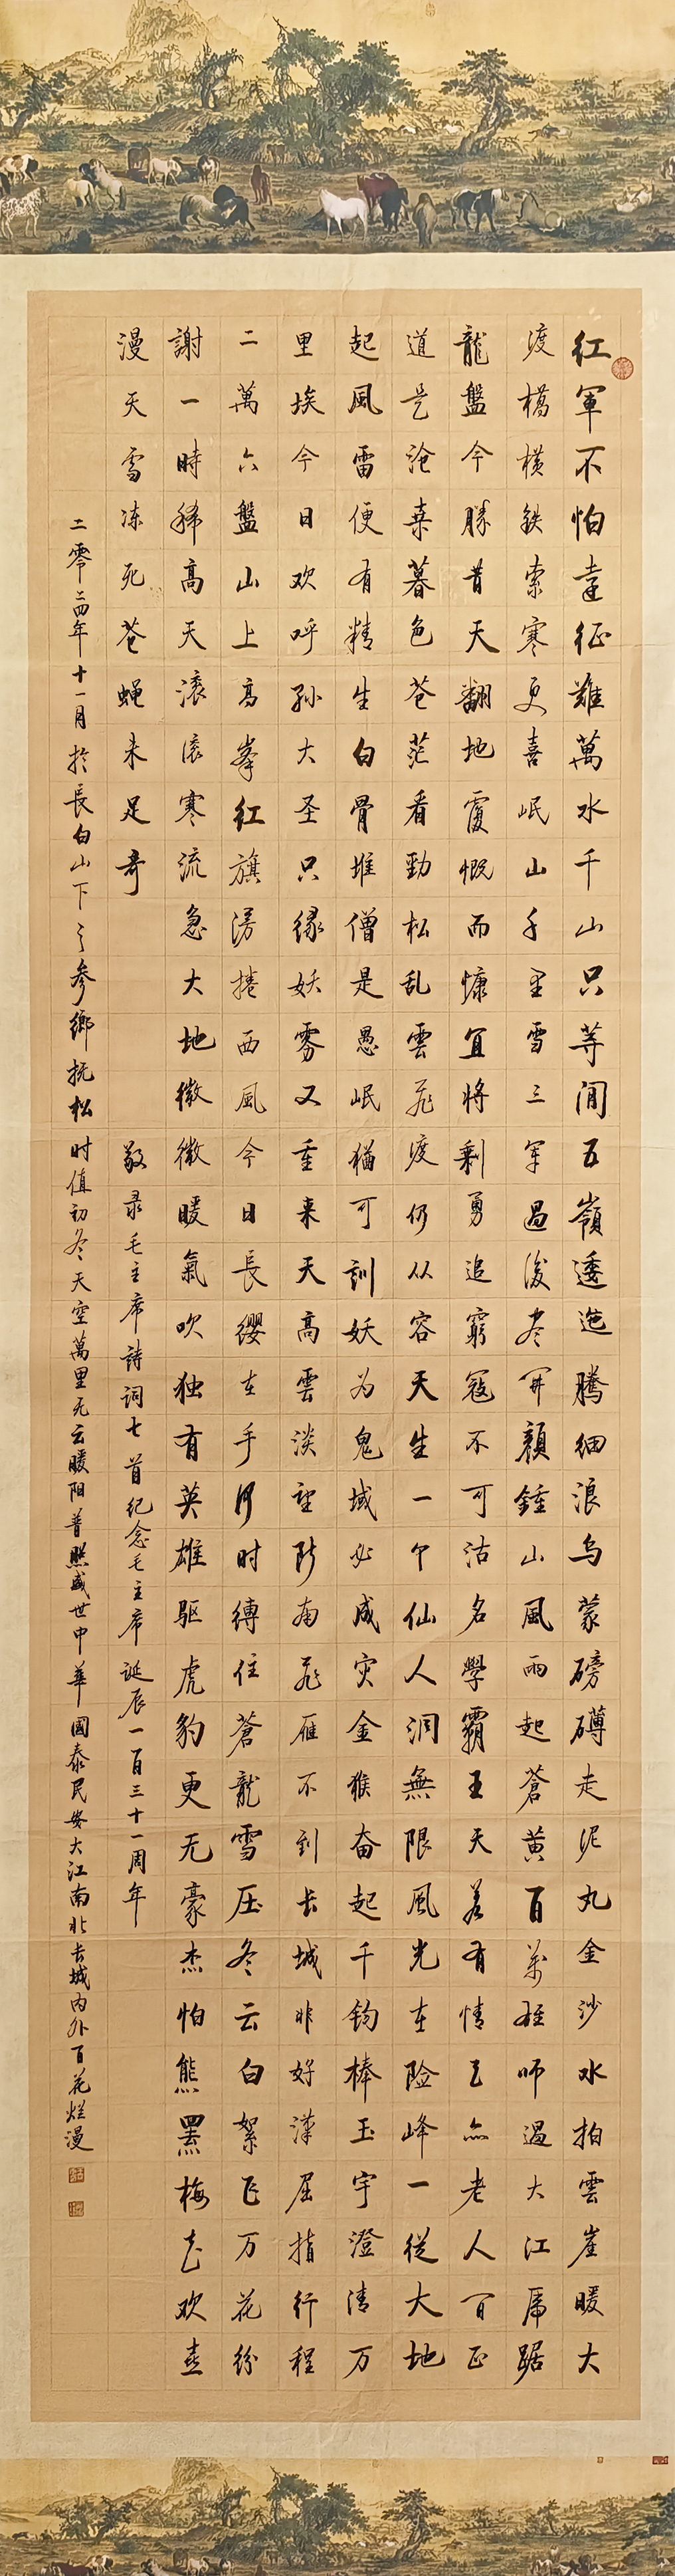 红軍不怕遠征難萬水千山只等閒五嶺逶迤騰細浪烏蒙磅礴走泥丸金沙水拍雲崖暖大
渡橋橫鉄索寒更喜岷山千里雪三军過後尽開顏鍾山風雨起蒼黄百萬雄师過大江虎踞
龍盤今勝昔天翻地覆慨而慷宜將剩勇追窮寇不可沽名學霸王天若有情天亦老人间正
道是滄桑暮色苍茫看勁松乱雲飛渡仍从容天生一个仙人洞無限風光在险峰一從大地
起風雷便有精生白骨堆僧是愚氓猶可訓妖为鬼域必成灾金猴奋起千钧棒玉宇澄清万
里埃今日欢呼孙大圣只缘妖雾又重来天高雲淡望断南飛雁不到长城非好漢屈指行程
二萬六盤山上高峯红旗漫捲西風今日長缨在手何时缚住蒼龍雪压冬云白絮飞万花纷
謝一時稀高天滚滚寒流急大地微微暖氣吹独有英雄驱虎豹更无豪杰怕熊羆梅花欢喜
漫天雪冻死苍蝇未足奇 敬录毛主席詩词七首纪念毛主席诞辰一百三十一周年
二零二四年十一月於長白山下之参鄉抚松时值初冬天空萬里无云暖阳普照盛世中華國泰民安大江南北长城内外百花烂漫